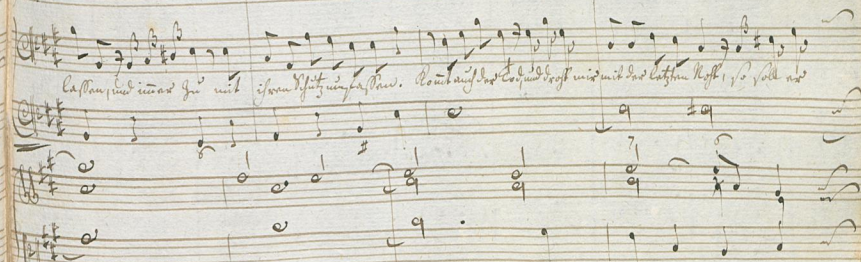 lassen, und immer zu mit ihren Schutz umfassen. Kommt auch der Tod, und droht mir mit der letzten Noht, so soll er
6 # 7 6